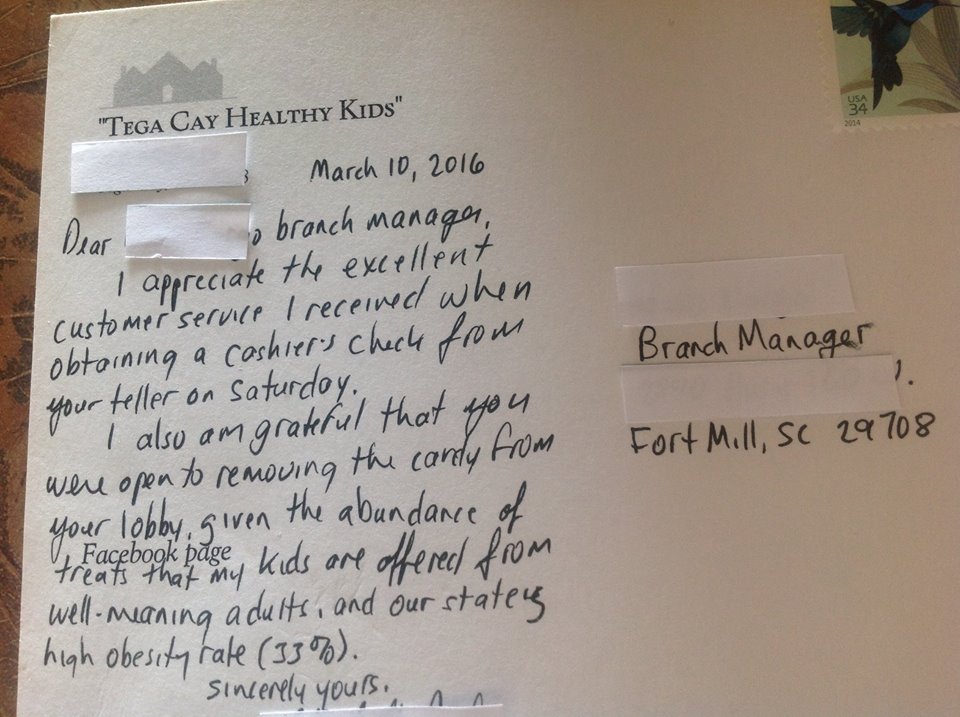 "TEGA CAY HEALTHY KIDS"
March 10, 2016
Dear branch manager,
I appreciate the excellent
customer service I received when
obtaining a cashier's check from
your teller on Saturday.
I also am grateful that you
were open to removing the candy from
your lobby, given the abundance of
Facebook page
treats that my kids are offered from
well-meaning adults, and our state's
high obesity rate (33%).
sincerely yours,
USA
34
2014
Branch Manager
Fort Mill, SC 29708